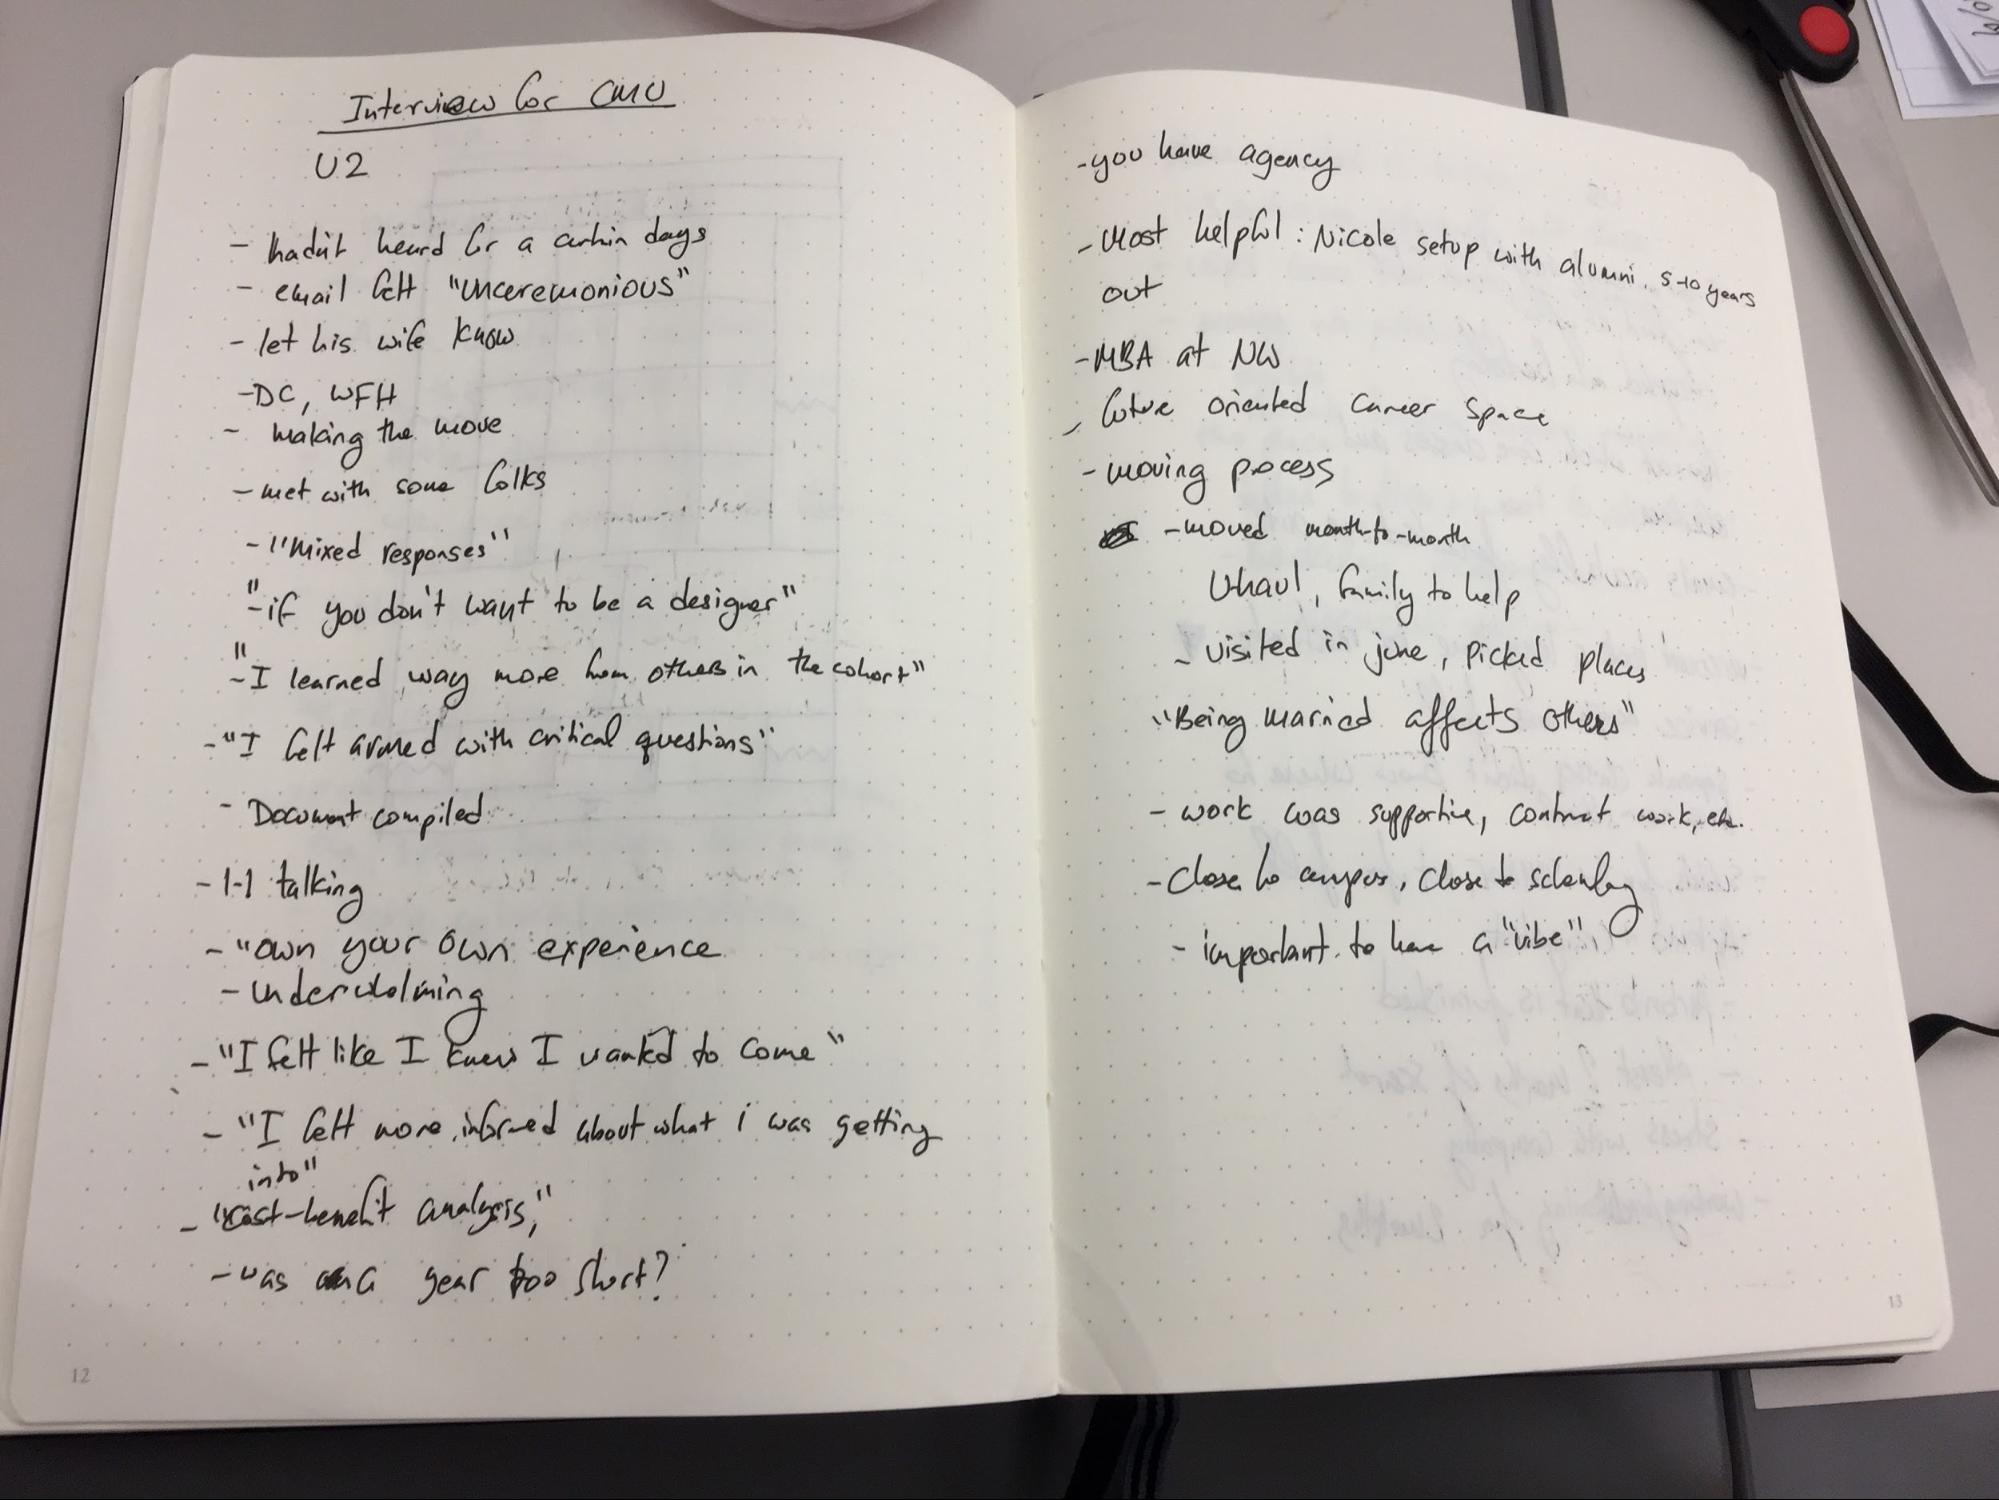 Interview for CMU
U2
- hadn't heard for a certain days
- email felt "unceremonious"
- let his wife know
- DC, WFH
- making the move
- met with some folks
- "mixed responses"
"- if you don't want to be a designer"
"- I learned way more from others in the cohort"
- "I felt armed with critical questions"
- Document compiled
- 1-1 talking
- "own your own experience
- underwhelming
- "I felt like I knew I wanted to come"
- "I felt more informed about what i was getting
into"
- "cost-benefit analysis,"
- was a year too short?
12
- you have agency
- Most helpful : Nicole setup with alumni, 5-10 years
out
- MBA at NW
- future oriented career space
- moving process
- moved month-to-month
Uhaul, family to help
- visited in june, picked places
"Being married affects others"
- work was supportive, contract work, etc.
- close to campus, close to
- important to have a "vibe"
13